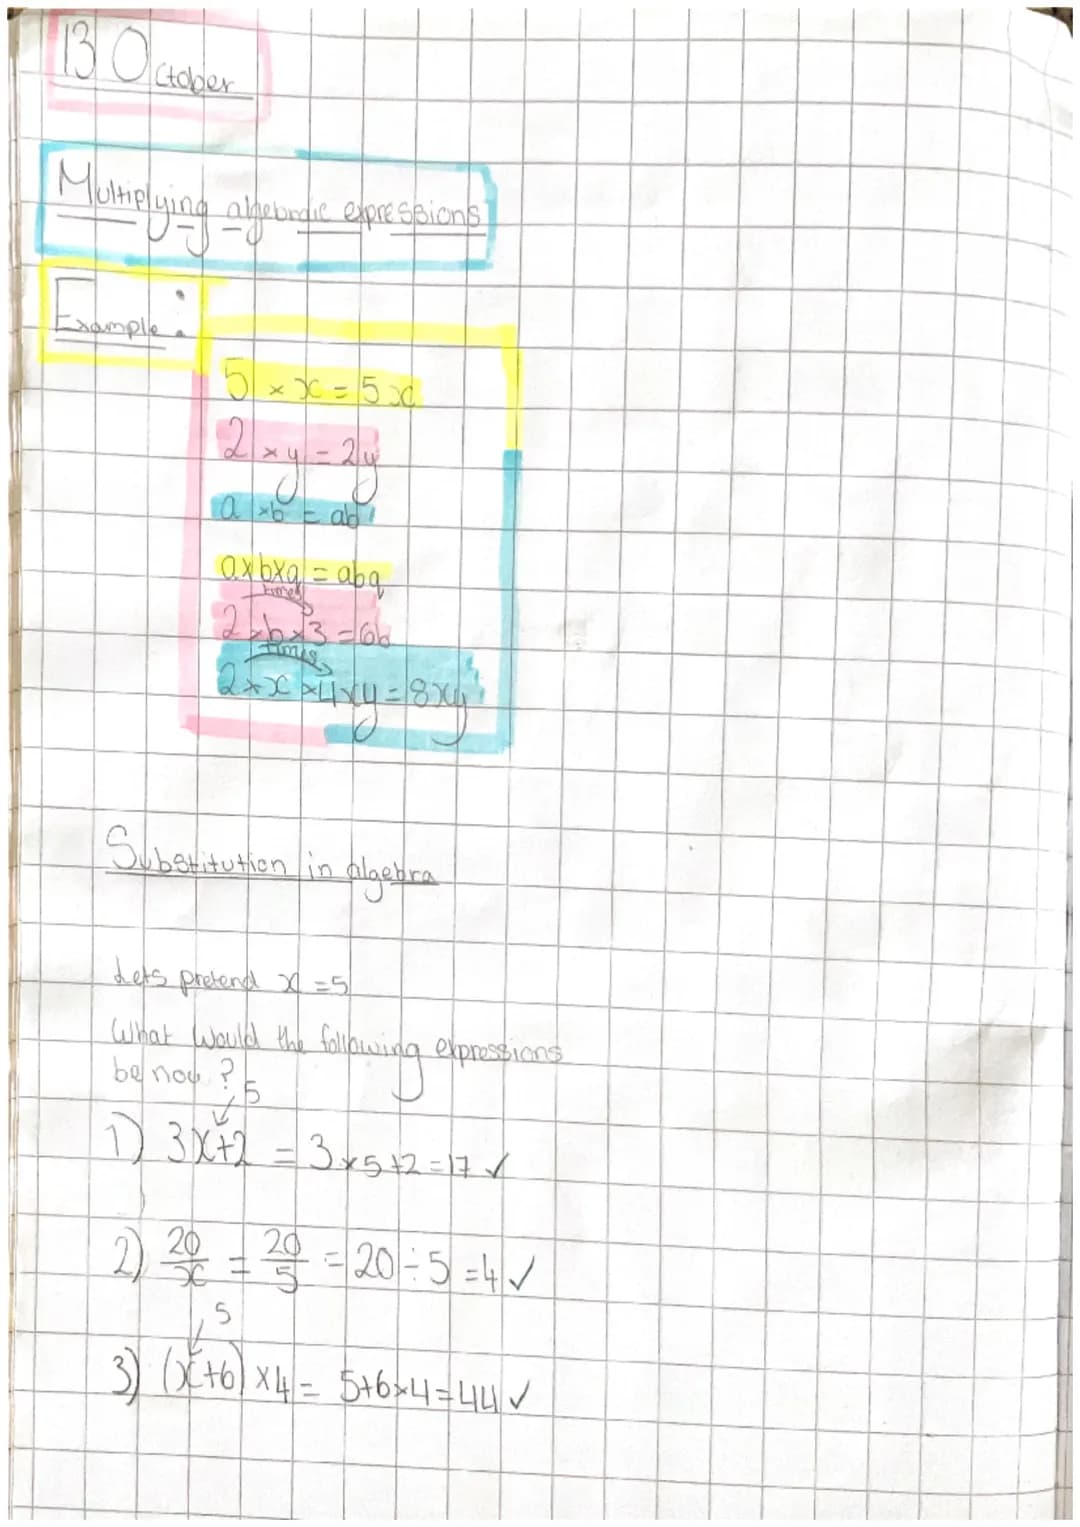 13 October
Multiplying algebraic expressions
Example:
5 × x = 5x
2 × y = 2y
a × b = ab
a×b×q = abq
times
2×b×3 = 6b
times
2×x×4×y = 8xy
Substitution in algebra
Lets pretend x = 5
What would the following expressions
be now ?
5
1) 3x+2 = 3×5+2 = 17 ✓
2) 20/x = 20/5 = 20÷5 = 4 ✓
5
3) (x+6) ×4 = 5+6×4=44 ✓